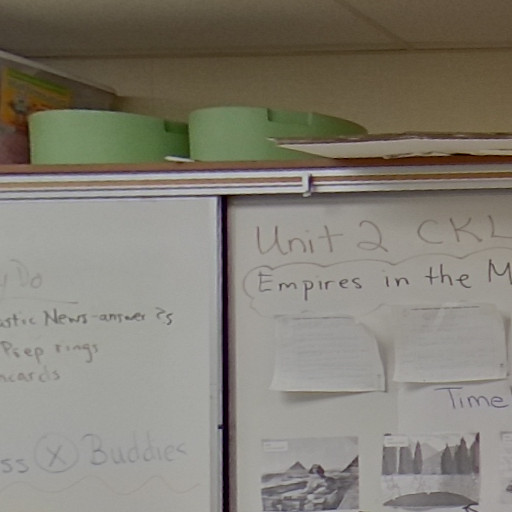 y Do
astic News-answer ?s
Prep rings
hcards
ss X Buddies
Unit 2 CKL
Empires in the M
Time